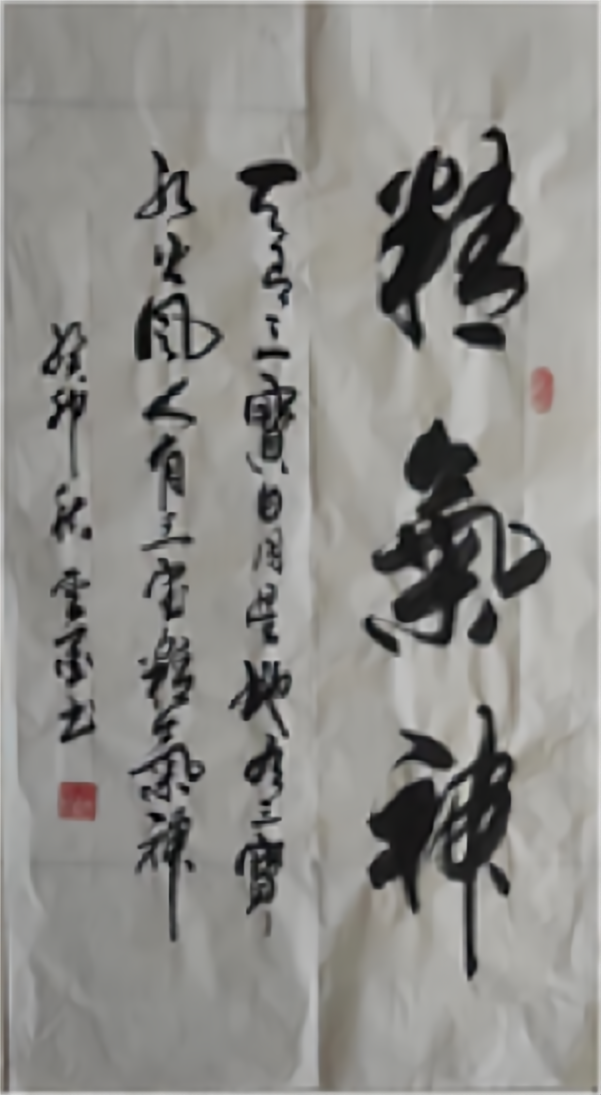 精氣神
天有三寶日月星地有三寶
水火風人有三宝精氣神
癸卯秋雲墨书